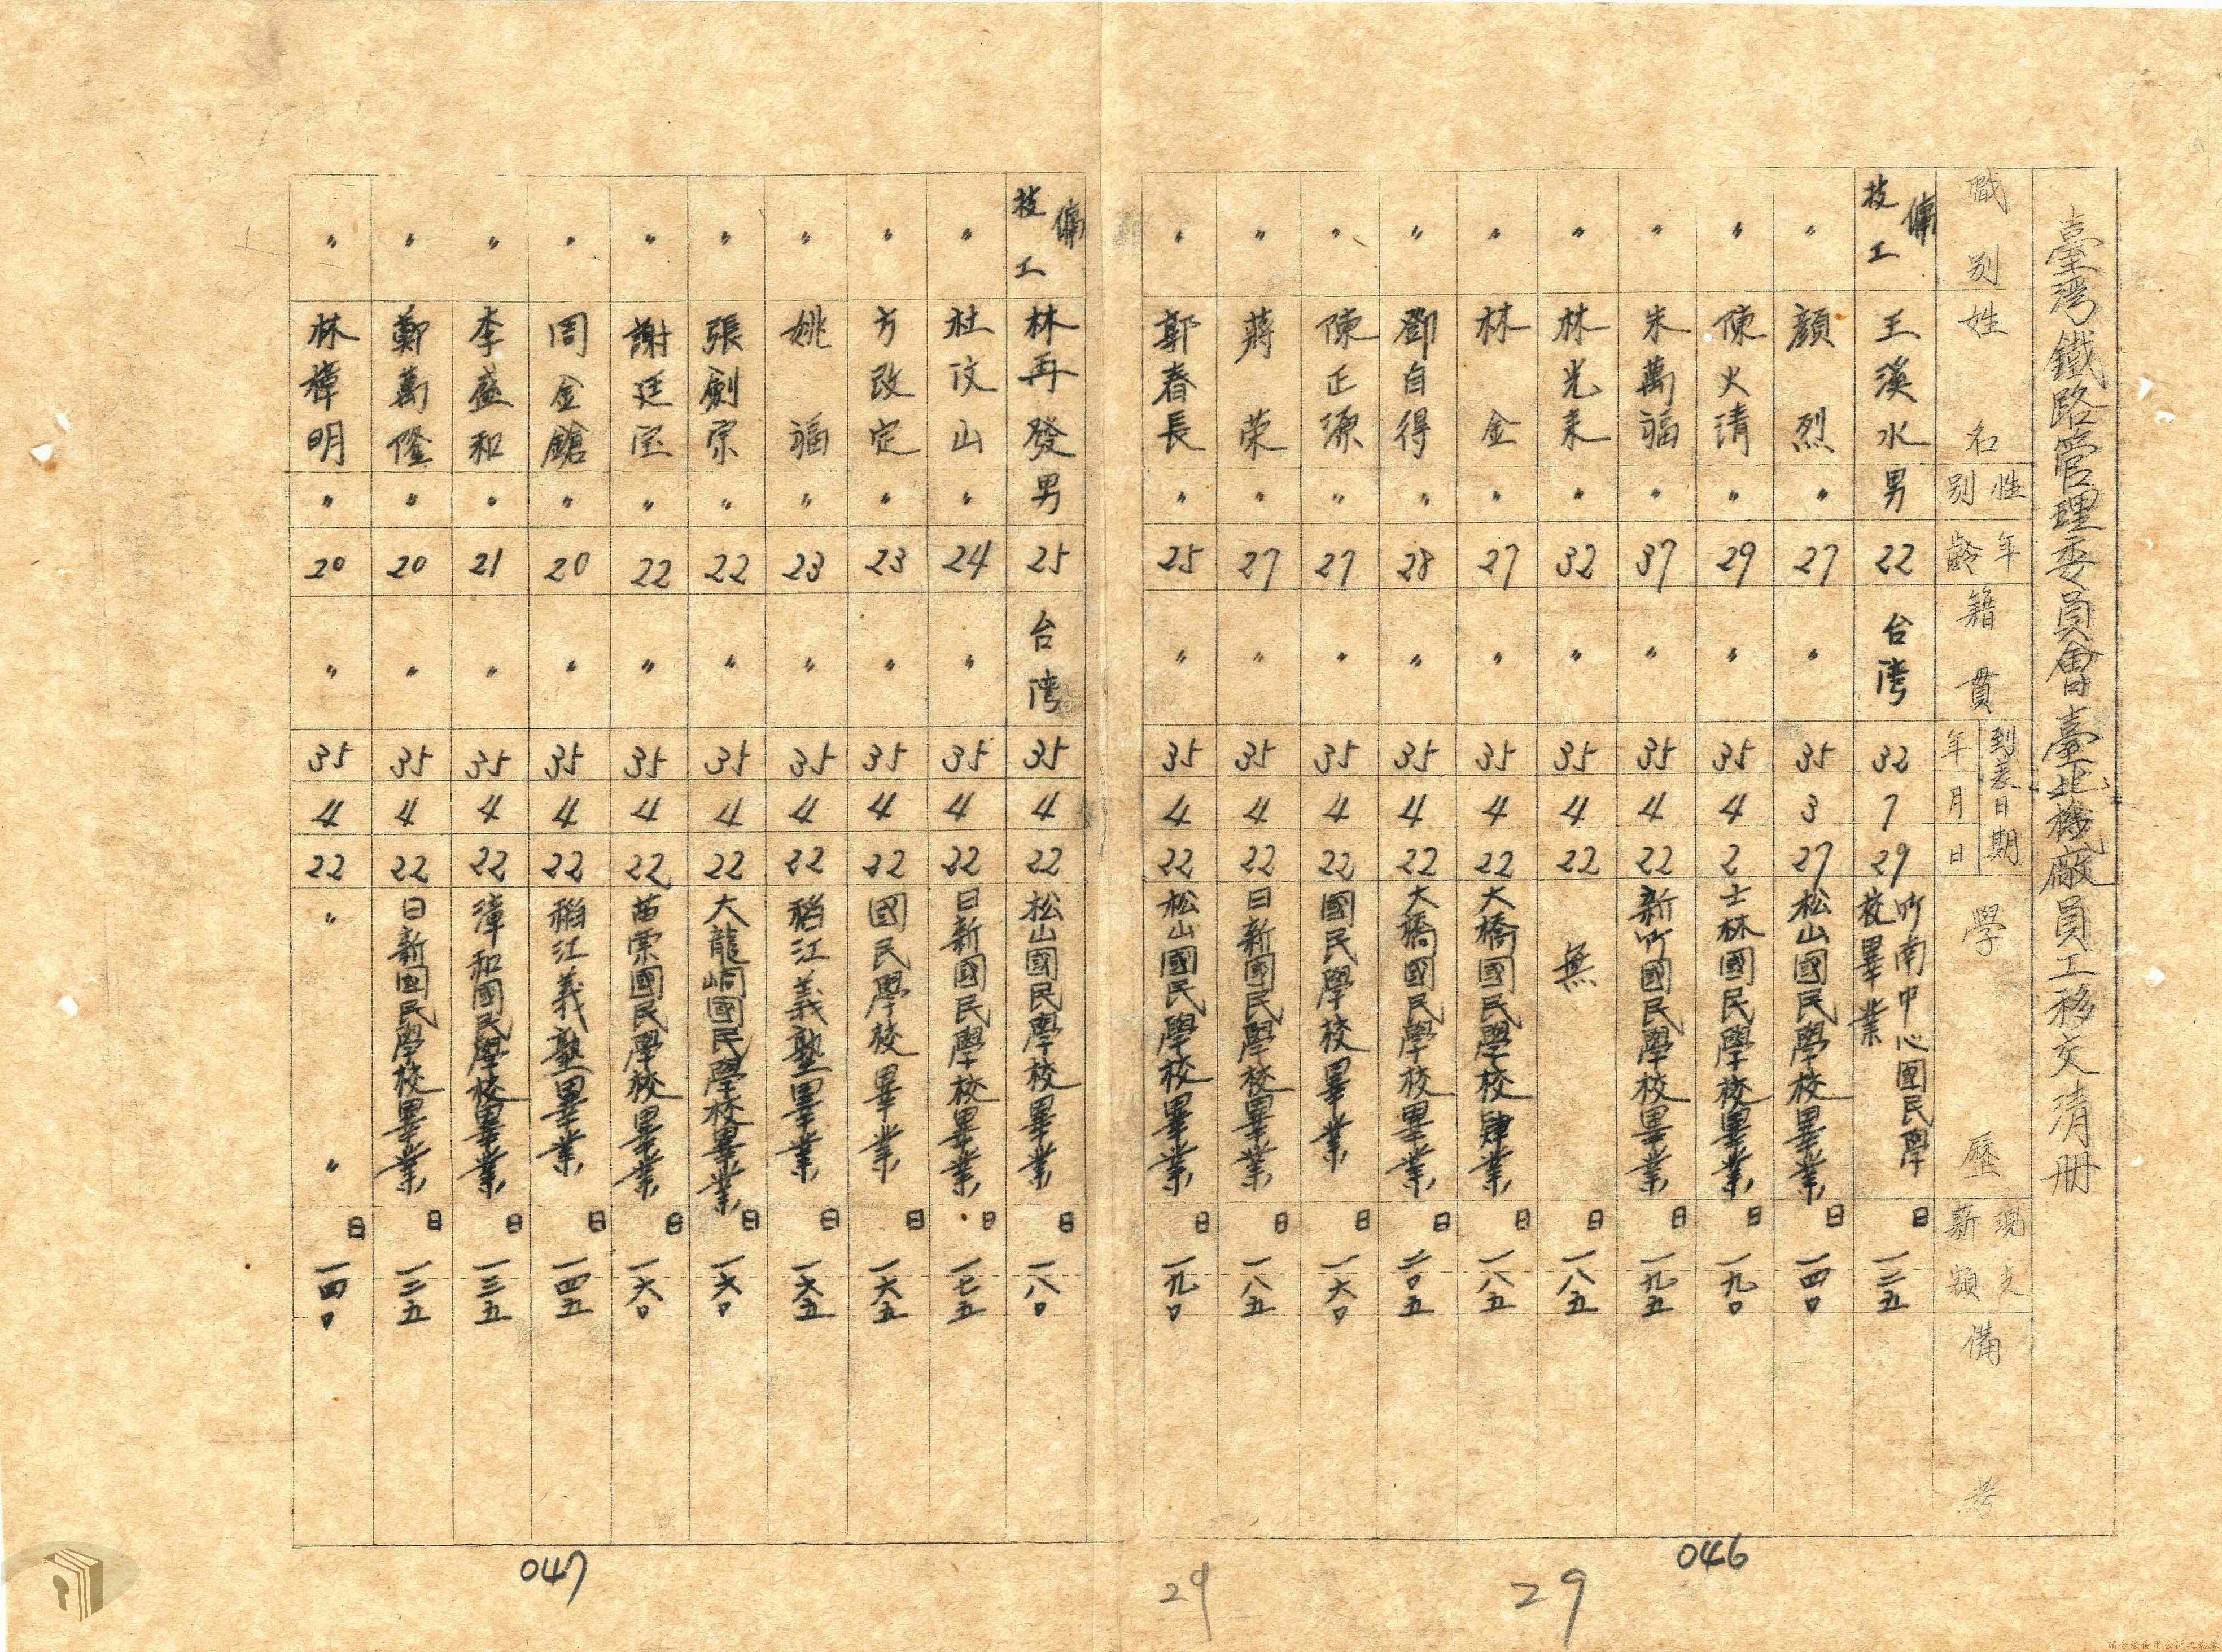 臺灣鐵路管理委員會臺北機廠員工移交清冊
職別 姓名 性別 年齡 籍貫 到差日期 年 月 日 學歷 現支薪額 備考
技工 傭 王溪水 男 22 台湾 32 7 29 竹南中心國民學校畢業 日 一二五
〃 顏烈 〃 27 〃 35 3 27 松山國民學校畢業 日 一四0
〃 陳火清 〃 29 〃 35 4 2 士林國民學校畢業 日 一九0
〃 朱萬福 〃 37 〃 35 4 22 新竹國民學校畢業 日 一九五
〃 林光來 〃 32 〃 35 4 22 無 日 一八五
〃 林金 〃 27 〃 35 4 22 大橋國民學校肄業 日 一八五
〃 鄧自得 〃 28 〃 35 4 22 大橋國民學校畢業 日 二0五
〃 陳正源 〃 27 〃 35 4 22 國民學校畢業 日 一六0
〃 蔣荣 〃 27 〃 35 4 22 日新國民學校畢業 日 一八五
〃 郭春長 〃 25 〃 35 4 22 松山國民學校畢業 日 一九0
046
29
29
技工 傭 林再發 男 25 台湾 35 4 22 松山國民學校畢業 日 一八0
〃 杜汶山 〃 24 〃 35 4 22 日新國民學校畢業 日 一七五
〃 方改定 〃 23 〃 35 4 22 國民學校畢業 日 一六五
〃 姚福 〃 23 〃 35 4 22 稻江義塾畢業 日 一六五
〃 張劍宗 〃 22 〃 35 4 22 大龍峒國民學校畢業 日 一六0
〃 謝廷宝 〃 22 〃 35 4 22 苗栗國民學校畢業 日 一六0
〃 周金鎗 〃 20 〃 35 4 22 稻江義塾畢業 日 一四五
〃 李盛和 〃 21 〃 35 4 22 漳和國民學校畢業 日 一三五
〃 鄭萬隆 〃 20 〃 35 4 22 日新國民學校畢業 日 一三五
〃 林樟明 〃 20 〃 35 4 22 〃 〃 日 一四0
047